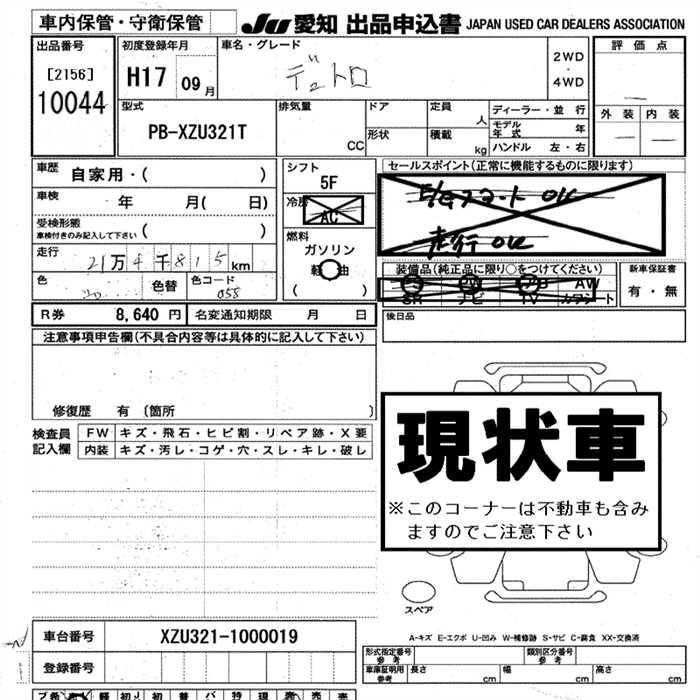 車内保管・守衛保管
JU 愛知 出品申込書 JAPAN USED CAR DEALERS ASSOCIATION
出品番号
[2156]
10044
初度登録年月
H17 09月
車名・グレード
デュトロ
2WD
・
4WD
評価点
外装 内装
型式
PB-XZU321T
排気量
CC
ドア
形状
定員
人
積載
kg
ディーラー・並行
モデル年式 年
ハンドル 左・右
車歴 自家用・( )
車検 年 月( 日)
受検形態
車検付きのみ記入して下さい ( )
走行 21万4千815km
色 色替 色コード 058
シフト
5F
冷房
AC
燃料
ガソリン
軽油
( )
セールスポイント(正常に機能するものに限ります)
E/Gスタート OK
走行 OK
装備品(純正品に限り○をつけてください)
PS PW AB AW
SR ナビ TV カワシート
新車保証書
有・無
R券 8,640 円 名変通知期限 月 日
後日品
注意事項申告欄(不具合内容等は具体的に記入して下さい)
修復歴 有 〔箇所 〕
検査員記入欄
FW キズ・飛石・ヒビ割・リペア跡・X要
内装 キズ・汚レ・コゲ・穴・スレ・キレ・破レ
現状車
※このコーナーは不動車も含み
ますのでご注意下さい
スペア
A-キズ E-エクボ U-凹み W-補修跡 S-サビ C-腐食 XX-交換済
車台番号 XZU321-1000019
登録番号
形式指定番号
参考
類別区分番号
参考
車庫証明用
参考
長さ cm 幅 cm 高さ cm